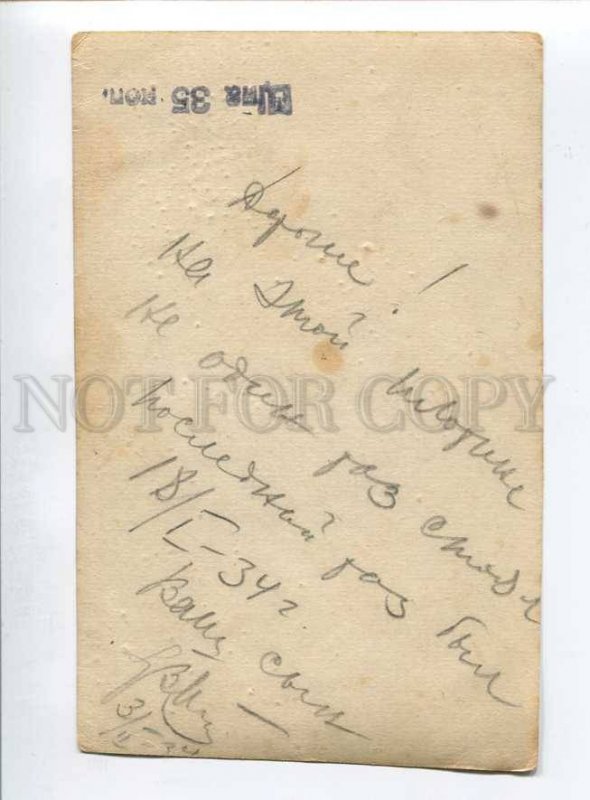 Цена 35 коп.
Дорогие!
На этой
не один раз стоял
последний раз был
18/I-34г
Ваш сын
3/II-34
NOT FOR COPY